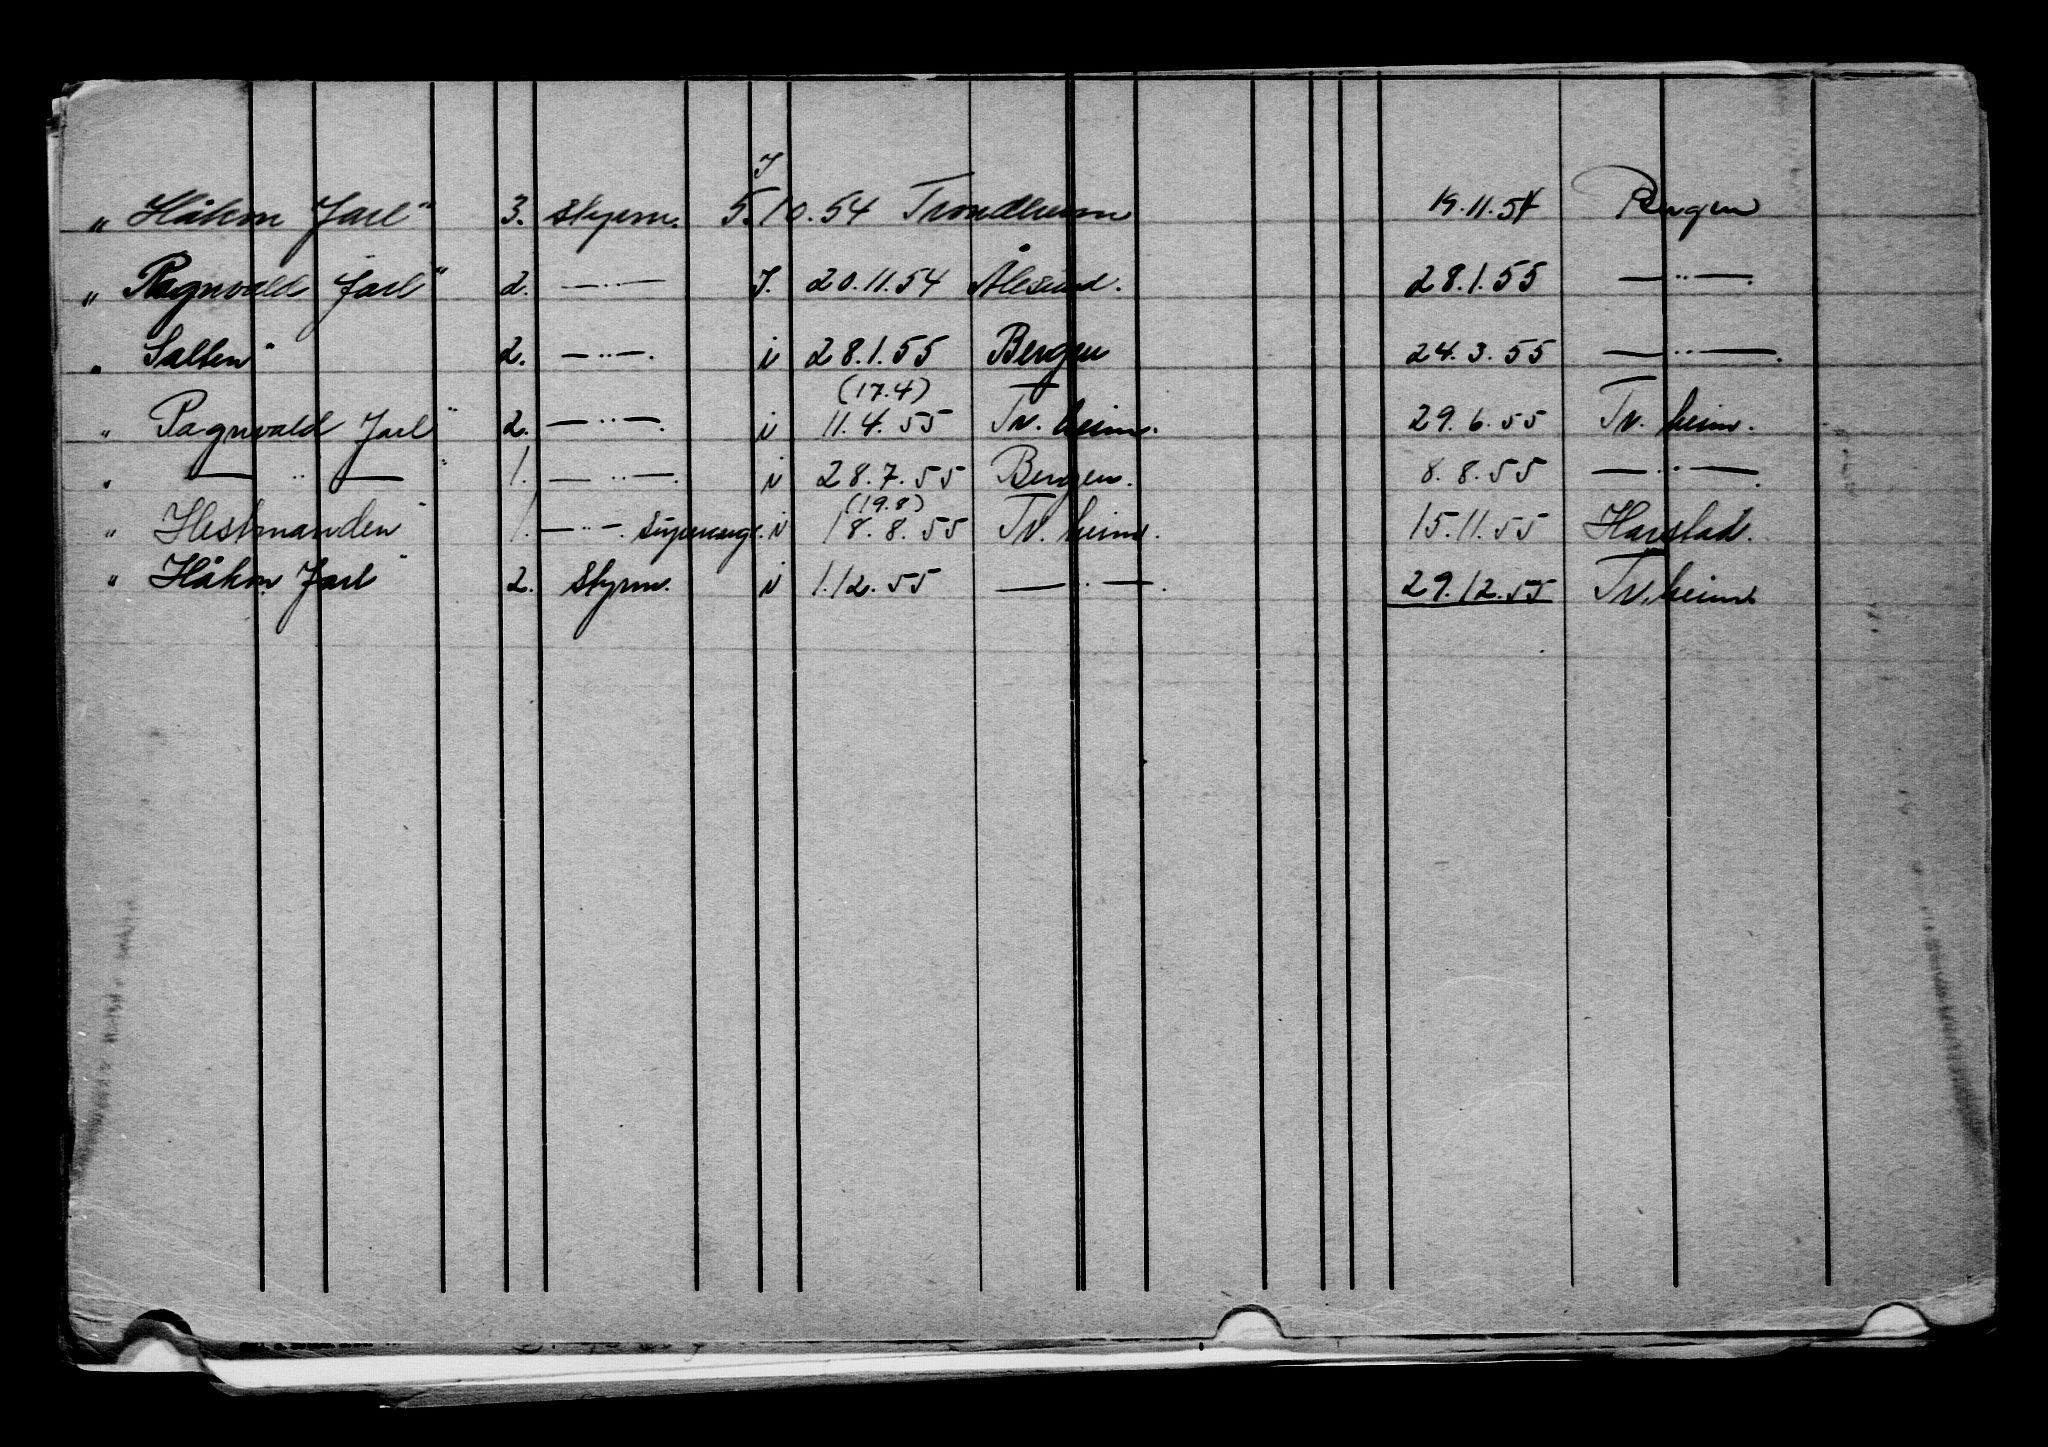 „ Håkon Jarl" 3. Styrm. I 5.10.54 Trondheim 19.11.54 Bergen
„ Ragnvald Jarl" 2. —„— I. 20.11.54 Ålesund. 28.1.55 —„—.
„ Salten" 2. —„—. i 28.1.55 Bergen 24.3.55 —„—.
(17.4)
„ Ragnvald Jarl" 2. —„—. i 11.4.55 Tr.heim. 29.6.55 Tr.heim.
„ —„—" 1. —„—. i 28.7.55 Bergen. 8.8.55 —„—.
(19.8)
„ Hestmanden" 1. —„—. i 18.8.55 Tr.heim. 15.11.55 Harstad.
„ Håkon Jarl" 2. Styrm. i 1.12.55 —„—. 29.12.55 Tr.heim.